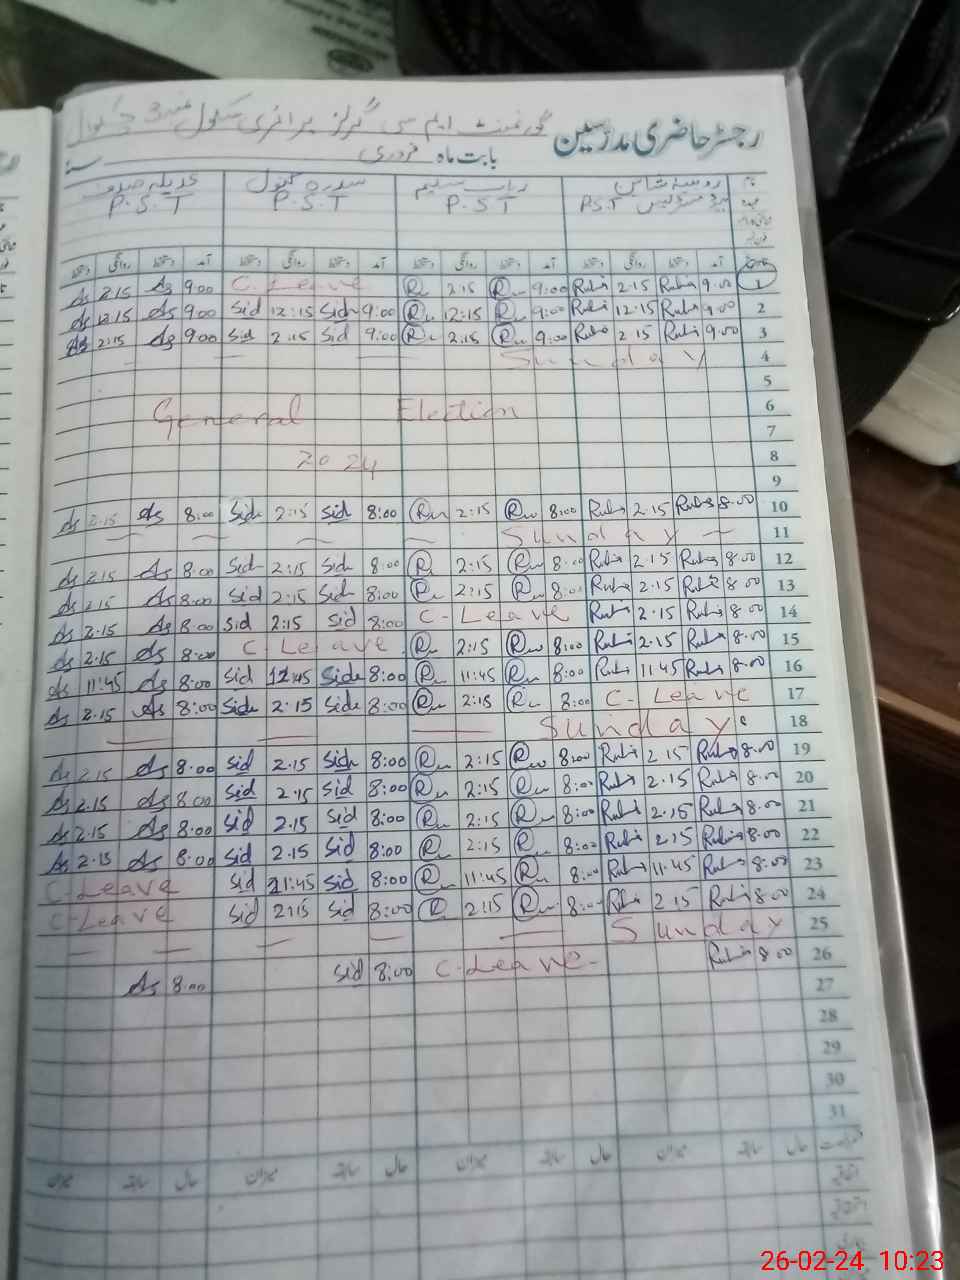 رجسٹر حاضری مدرسین گورنمنٹ ایم سی گرلز پرائمری سکول نمبر 3 چکوال
بابت ماہ فروری سنہ
نام روبینہ شاہین رباب سلیم سدرہ کنول
P.S.T P.S.T P.S.T P.S.T
تاریخ آمد دستخط روانگی دستخط آمد دستخط روانگی دستخط آمد دستخط روانگی دستخط آمد دستخط روانگی دستخط
As 2.15 As 9:00 C. Leave Ru 2:15 Ru 9:00 Rubi 2.15 Rubi 9.00 1
As 12.15 As 9:00 Sid 12:15 Sid 9:00 Ru 12:15 Ru 9:00 Rubi 12.15 Rubi 9.00 2
As 2:15 As 9:00 Sid 2:15 Sid 9:00 Ru 2:15 Ru 9:00 Rubi 2.15 Rubi 9.00 3
Sunday 4
5
General Election 6
7
2024 8
9
As 2.15 As 8:00 Sid 2:15 Sid 8:00 Ru 2:15 Ru 8:00 Rubi 2.15 Rubi 8.00 10
Sunday 11
As 2.15 As 8.00 Sid 2:15 Sid 8:00 Ru 2:15 Ru 8:00 Rubi 2.15 Rubi 8.00 12
As 2.15 As 8:00 Sid 2:15 Sid 8:00 Ru 2:15 Ru 8:00 Rubi 2.15 Rubi 8.00 13
As 2.15 As 8:00 Sid 2:15 Sid 8:00 C-Leave Rubi 2.15 Rubi 8.00 14
As 2.15 As 8:00 C Leave Ru 2:15 Ru 8:00 Rubi 2.15 Rubi 8.00 15
As 11:45 As 8:00 Sid 11:45 Sid 8:00 Ru 11:45 Ru 8:00 Rubi 11.45 Rubi 8.00 16
As 2.15 As 8:00 Sid 2.15 Sid 8:00 Ru 2:15 Ru 8:00 C-Leave 17
Sunday 18
As 2.15 As 8.00 Sid 2.15 Sid 8:00 Ru 2:15 Ru 8:00 Rubi 2.15 Rubi 8.00 19
As 2.15 As 8.00 Sid 2.15 Sid 8:00 Ru 2:15 Ru 8:00 Rubi 2.15 Rubi 8.00 20
As 2.15 As 8.00 Sid 2.15 Sid 8:00 Ru 2:15 Ru 8:00 Rubi 2.15 Rubi 8.00 21
As 2.15 As 8.00 Sid 2.15 Sid 8:00 Ru 2:15 Ru 8:00 Rubi 2.15 Rubi 8.00 22
C-Leave Sid 11:45 Sid 8:00 Ru 11:45 Ru 8:00 Rubi 11.45 Rubi 8.00 23
C-Leave Sid 2:15 Sid 8:00 Ru 2:15 Ru 8:00 Rubi 2.15 Rubi 8.00 24
Sunday 25
As 8.00 Sid 8:00 C-Leave Rubi 8.00 26
27
28
29
30
31
حال سابقہ میزان حال سابقہ میزان حال سابقہ میزان
26-02-24 10:23